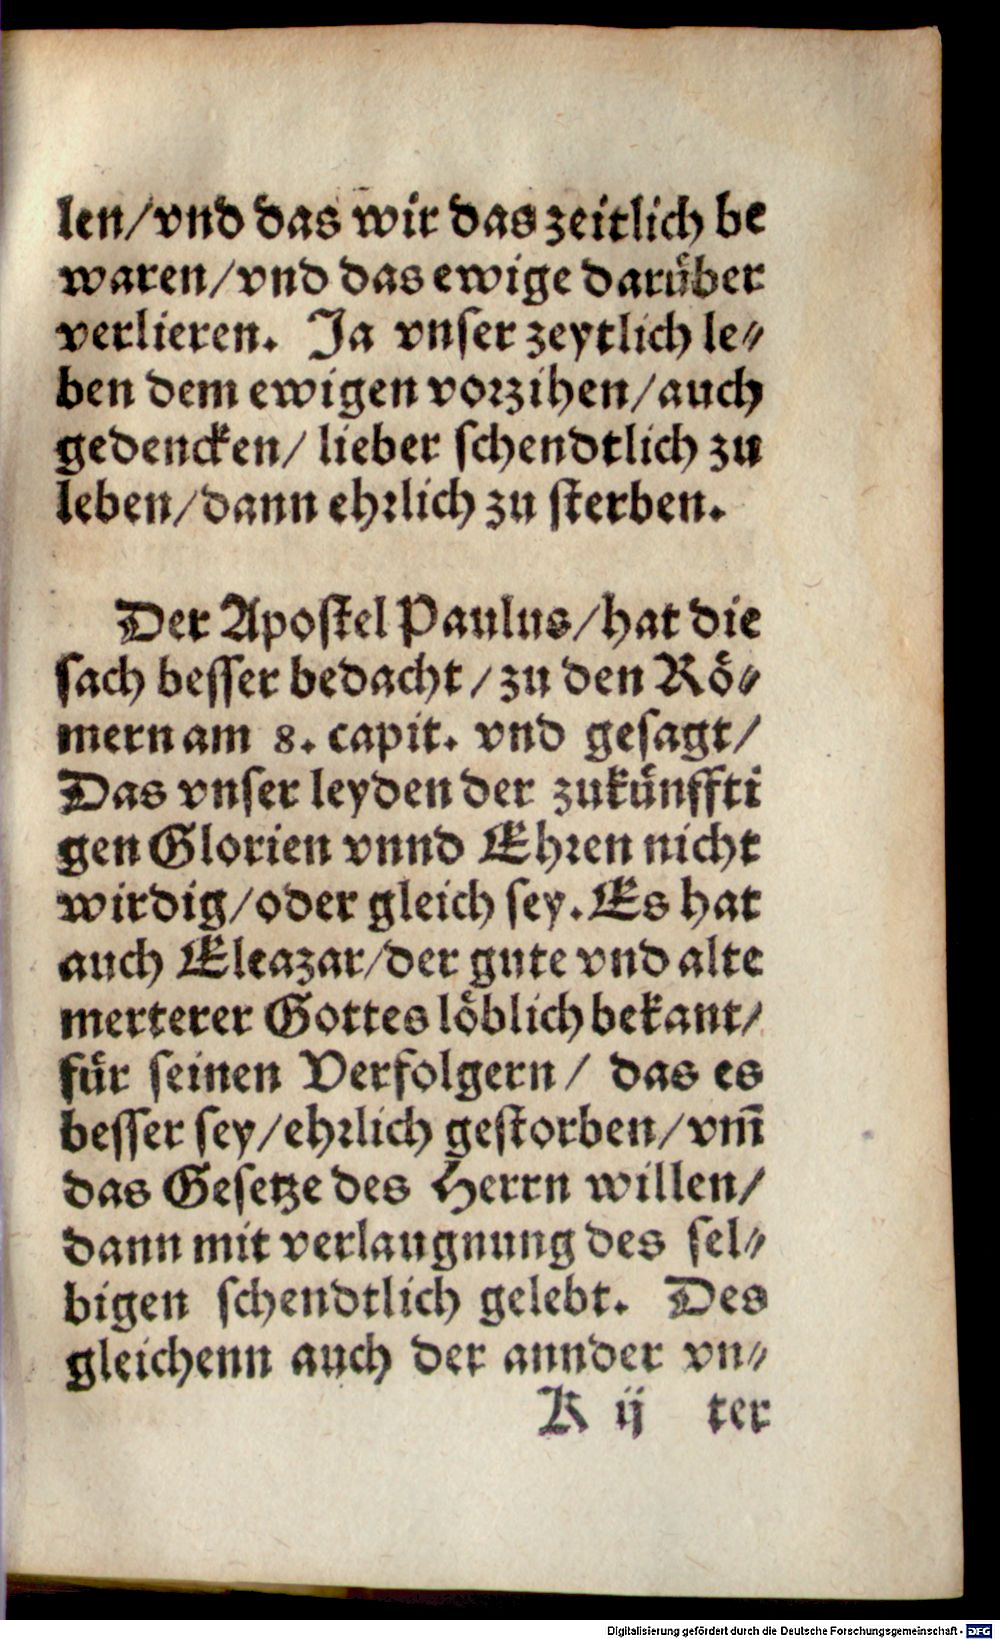 len/vnd das wir das zeitlich be
waren/vnd das ewige darüber
verlieren. Ja vnser zeytlich le⸗
ben dem ewigen vorzihen/auch
gedencken/ lieber schendtlich zu
leben/dann ehrlich zu sterben.
Der Apostel Paulus/hat die
sach besser bedacht/zu den Rö⸗
mern am 8. capit. vnd gesagt/
Das vnser leyden der zukünffti
gen Glorien vnnd Ehren nicht
wirdig/oder gleich sey. Es hat
auch Eleazar/der gute vnd alte
merterer Gottes löblich bekant/
für seinen Verfolgern/ das es
besser sey/ehrlich gestorben/vm̄
das Gesetze des Herrn willen/
dann mit verlaugnung des sel⸗
bigen schendtlich gelebt. Des
gleichenn auch der annder vn⸗
K ij ter
Digitalisierung gefördert durch die Deutsche Forschungsgemeinschaft - DFG